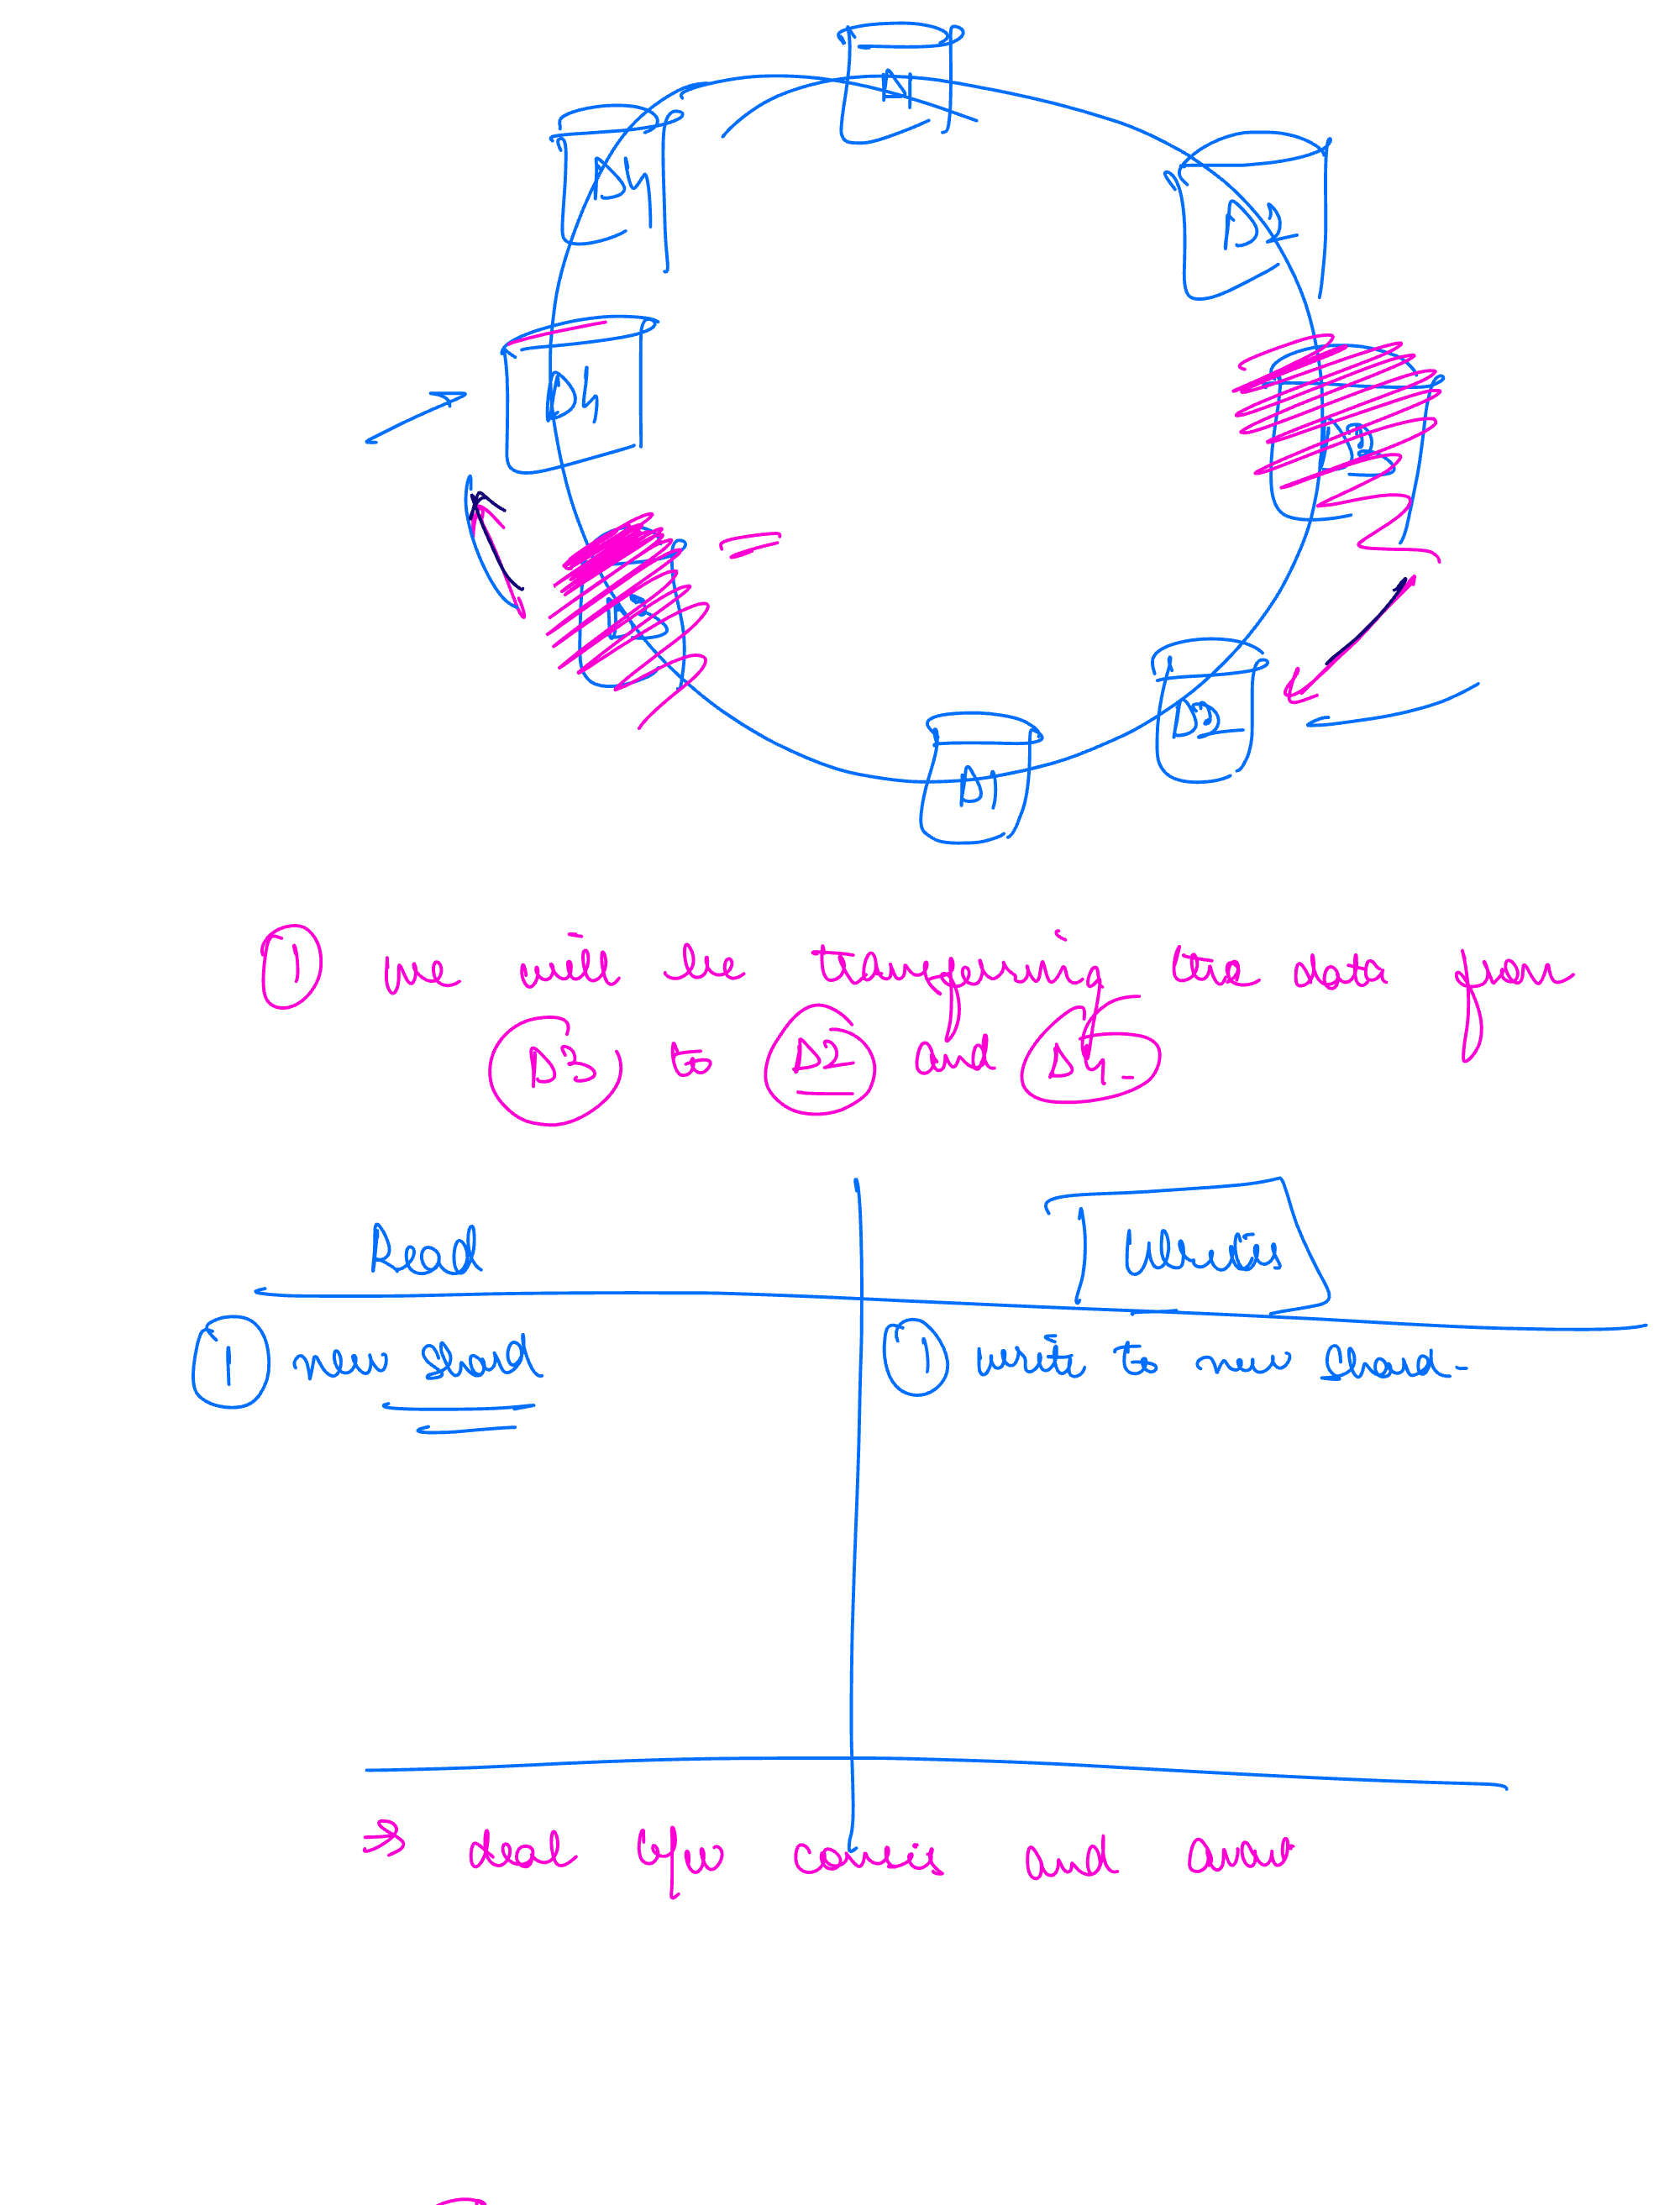 D1
D4
D2
D4
D3
D3
D2
D1
① we will be transferring the data from
D3 to D2 and D4
Read
Writes
① new shard
① write to new shard.
→ deal b/w consis and avail